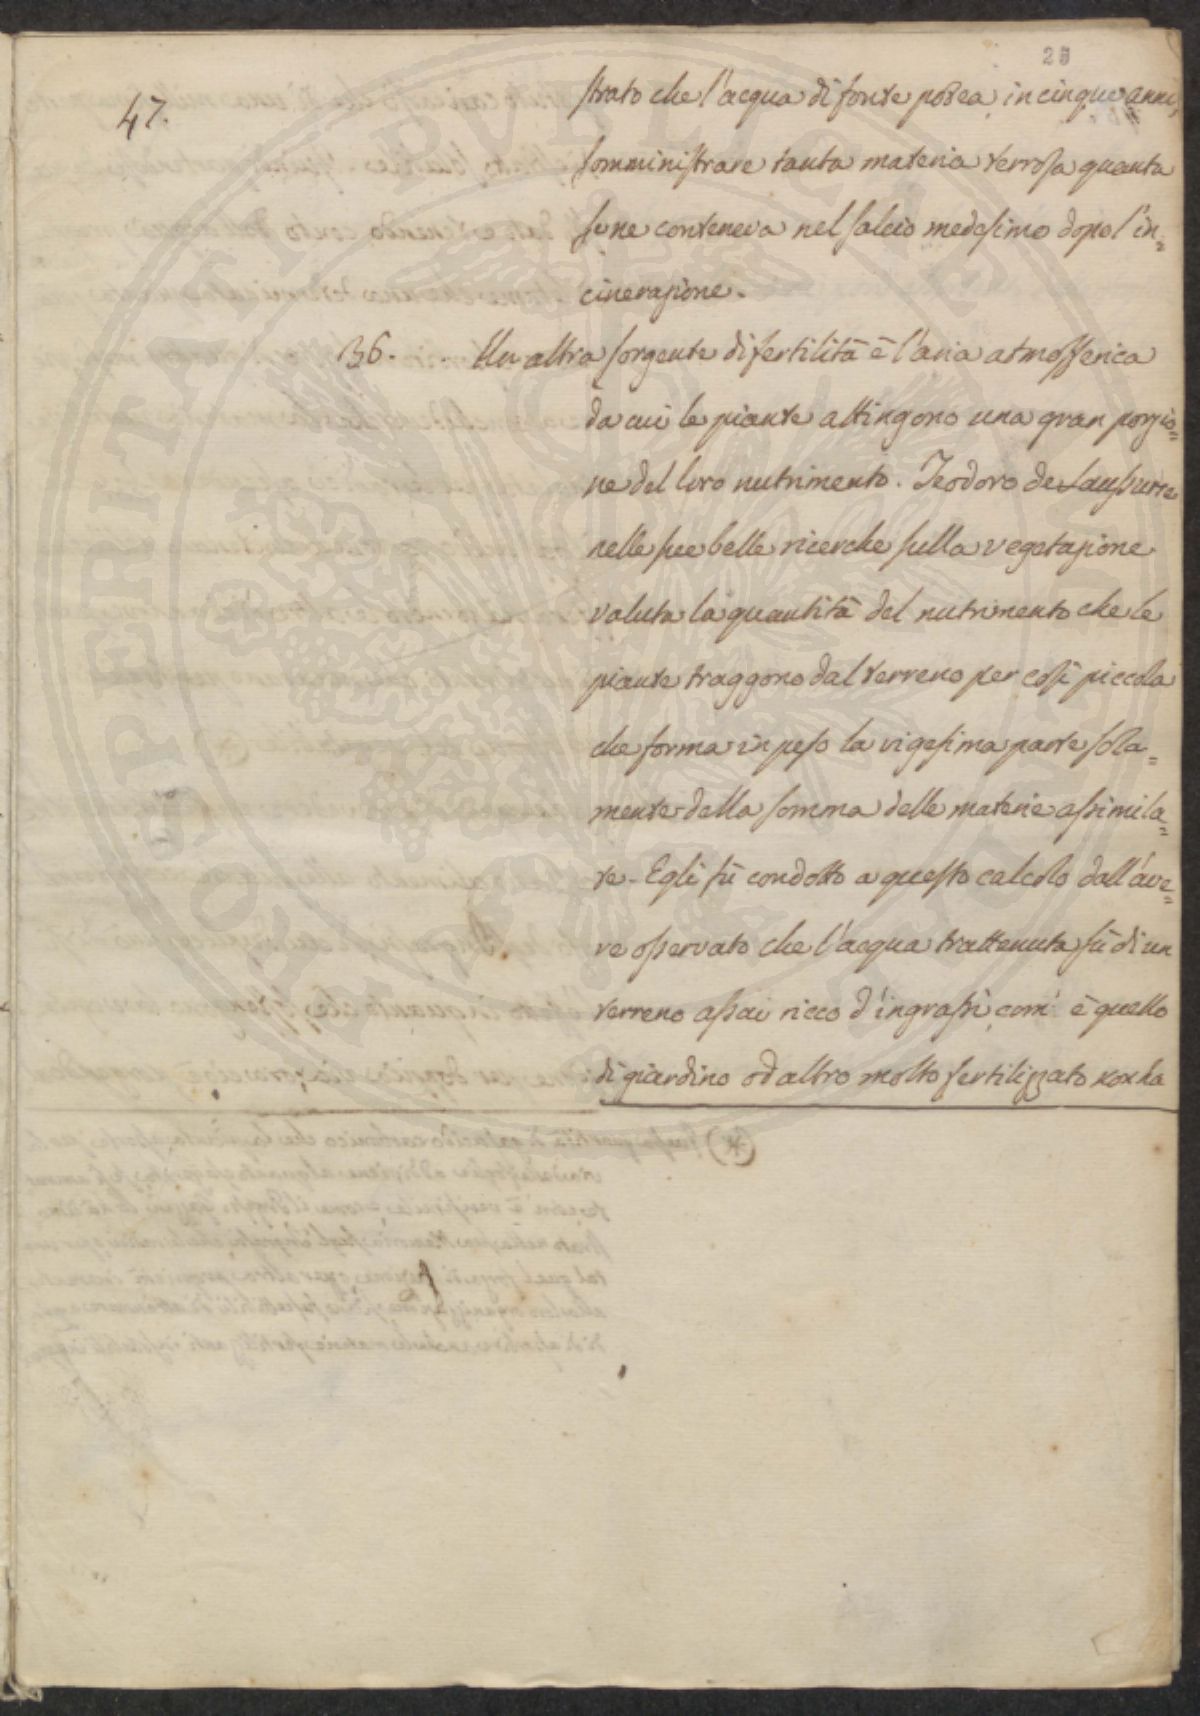 25
47.
strato che l'acqua di fonte potea in cinque anni,
somministrare tanta materia terrosa quanta
se ne conteneva nel salcio medesimo dopo l'in=
cinerazione.
36. Un altra sorgente di fertilità è l'aria atmosferica
da cui le piante attingono una gran porzio=
ne del loro nutrimento. Teodoro de Saussure
nelle sue belle ricerche sulla vegetazione
valuta la quantità del nutrimento che le
piante traggono dal terreno per così piccola
che forma in peso la vigesima parte sola=
mente della somma delle materie assimila=
te. Egli fù condotto a questo calcolo dall'ave=
re osservato che l'acqua trattenuta sù di un
terreno assai ricco d'ingrassi, com' è quello
di giardino od altro molto fertilizzato non ha